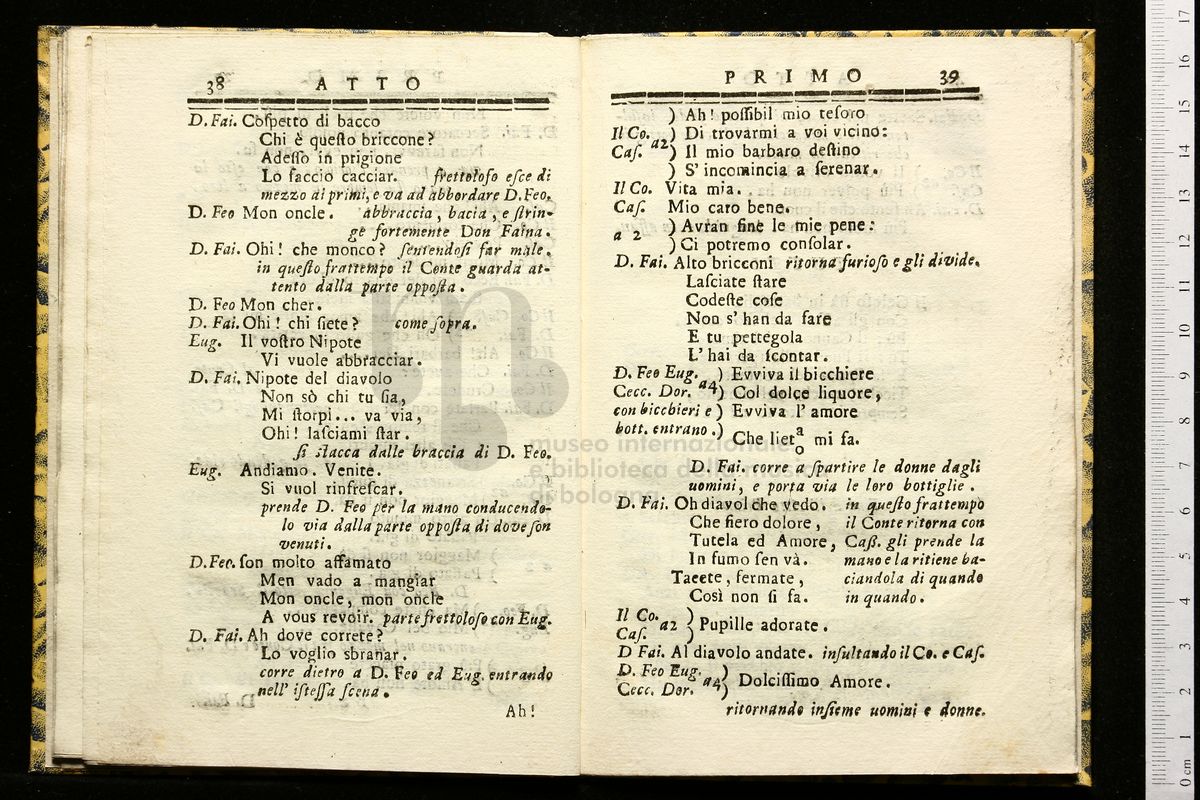 38 ATTO
D. Fai. Cospetto di bacco
Chi è questo briccone?
Adesso in prigione
Lo faccio cacciar. frettoloso esce di
mezzo ai primi, e va ad abbordare D. Feo.
D. Feo Mon oncle. abbraccia, bacia, e strin-
ge fortemente Don Faina.
D. Fai. Ohi! che monco? sentendosi far male.
in questo frattempo il Conte guarda at-
tento dalla parte opposta.
D. Feo Mon cher.
D. Fai. Ohi! chi siete? come sopra.
Eug. Il vostro Nipote
Vi vuole abbracciar.
D. Fai. Nipote del diavolo
Non sò chi tu sia,
Mi storpi... va via,
Ohi! lasciami star.
si stacca dalle braccia di D. Feo.
Eug. Andiamo. Venite.
Si vuol rinfrescar.
prende D. Feo per la mano conducendo-
lo via dalla parte opposta di dove son
venuti.
D. Feo. son molto affamato
Men vado a mangiar
Mon oncle, mon oncle
A vous revoir. parte frettoloso con Eug.
D. Fai. Ah dove correte?
Lo voglio sbranar.
corre dietro a D. Feo ed Eug. entrando
nell' istessa scena.
Ah!
PRIMO 39
) Ah! possibil mio tesoro
Il Co. ) Di trovarmi a voi vicino:
Cas. a2 ) Il mio barbaro destino
) S' incomincia a serenar.
Il Co. Vita mia.
Cas. Mio caro bene.
a 2 ) Avran fine le mie pene:
) Ci potremo consolar.
D. Fai. Alto bricconi ritorna furioso e gli divide.
Lasciate stare
Codeste cose
Non s' han da fare
E tu pettegola
L' hai da scontar.
D. Feo Eug. ) Evviva il bicchiere
Cecc. Dor. a4 ) Col dolce liquore,
con bicchieri e ) Evviva l' amore
bott. entrano. ) Che liet a o mi fa.
D. Fai. corre a spartire le donne dagli
uomini, e porta via le loro bottiglie.
D. Fai. Oh diavol che vedo. in questo frattempo
Che fiero dolore, il Conte ritorna con
Tutela ed Amore, Cass. gli prende la
In fumo sen và. mano e la ritiene ba-
Tacete, fermate, ciandola di quando
Così non si fa. in quando.
Il Co. )
Cas. a2 ) Pupille adorate.
D Fai. Al diavolo andate. insultando il Co. e Cas.
D. Feo Eug. )
Cecc. Dor. a4 ) Dolcissimo Amore.
ritornando insieme uomini e donne.
museo internazionale
e biblioteca della musica
di bologna